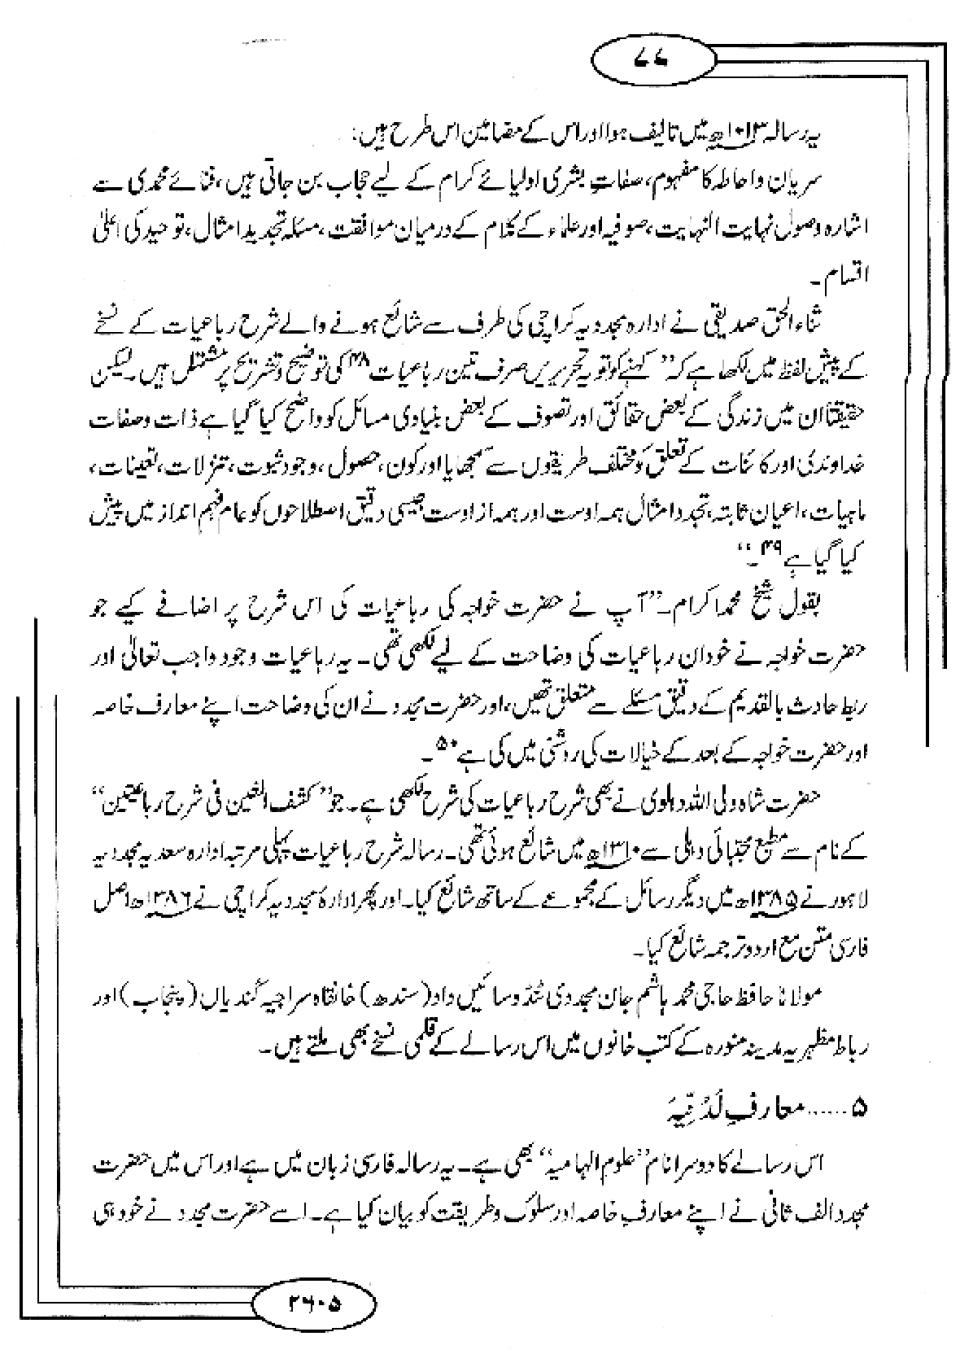 ۷۷
یہ رسالہ ۱۰۱۳ھ میں تالیف ہوا اور اس کے مضامین اس طرح ہیں:
سریان و احاطہ کا مفہوم، صفاتِ بشری اولیائے کرام کے لیے حجاب بن جاتی ہیں، فنائے محمدی سے
اشارہ وصول نہایت النہایت، صوفیہ اور علماء کے کلام کے درمیان موافقت، مسئلہ تجدید امثال، توحید کی اعلیٰ
اقسام۔
ثناء الحق صدیقی نے ادارہ مجددیہ کراچی کی طرف سے شائع ہونے والے شرح رباعیات کے نسخے
کے پیش لفظ میں لکھا ہے کہ ”کہنے کو تو یہ تحریریں صرف تین رباعیات ۴۸ کی توضیح و تشریح پر مشتمل ہیں۔ لیکن
حقیقتاً ان میں زندگی کے بعض حقائق اور تصوف کے بعض بنیادی مسائل کو واضح کیا گیا ہے ذات و صفات
خداوندی اور کائنات کے تعلق کو مختلف طریقوں سے سمجھایا اور کون، حصول، وجود ثبوت، تنزلات، تعینات،
ماہیات، اعیان ثابتہ، تجدد امثال ہمہ اوست اور ہمہ از اوست جیسی دقیق اصطلاحوں کو عام فہم انداز میں پیش
کیا گیا ہے ۴۹۔“
بقول شیخ محمد اکرام۔ ”آپ نے حضرت خواجہ کی رباعیات کی اس شرح پر اضافے کیے جو
حضرت خواجہ نے خود ان رباعیات کی وضاحت کے لیے لکھی تھی۔ یہ رباعیات وجود واجب تعالیٰ اور
ربط حادث بالقدیم کے دقیق مسئلے سے متعلق تھیں، اور حضرت مجدد نے ان کی وضاحت اپنے معارف خاصہ
اور حضرت خواجہ کے بعد کے خیالات کی روشنی میں کی ہے ۵۰۔
حضرت شاہ ولی اللہ دہلوی نے بھی شرح رباعیات کی شرح لکھی ہے۔ جو ”کشف الغین فی شرح رباعیتین“
کے نام سے مطبع مجتبائی دہلی سے ۱۳۱۰ھ میں شائع ہوئی تھی۔ رسالہ شرح رباعیات پہلی مرتبہ ادارہ سعدیہ مجددیہ
لاہور نے ۱۳۸۵ھ میں دیگر رسائل کے مجموعے کے ساتھ شائع کیا۔ اور پھر ادارۂ مجددیہ کراچی نے ۱۳۸۶ھ اصل
فارسی متن مع اردو ترجمہ شائع کیا۔
مولانا حافظ حاجی محمد ہاشم جان مجددی ٹنڈو سائیں داد (سندھ) خانقاہ سراجیہ کندیاں (پنجاب) اور
رباط مظہریہ مدینہ منورہ کے کتب خانوں میں اس رسالے کے قلمی نسخے بھی ملتے ہیں۔
۵...... معارفِ لَدُنِّیَہ
اس رسالے کا دوسرا نام ”علوم الہامیہ“ بھی ہے۔ یہ رسالہ فارسی زبان میں ہے اور اس میں حضرت
مجدد الف ثانی نے اپنے معارفِ خاصہ اور سلوک و طریقت کو بیان کیا ہے۔ اسے حضرت مجدد نے خود ہی
۲۶۰۵